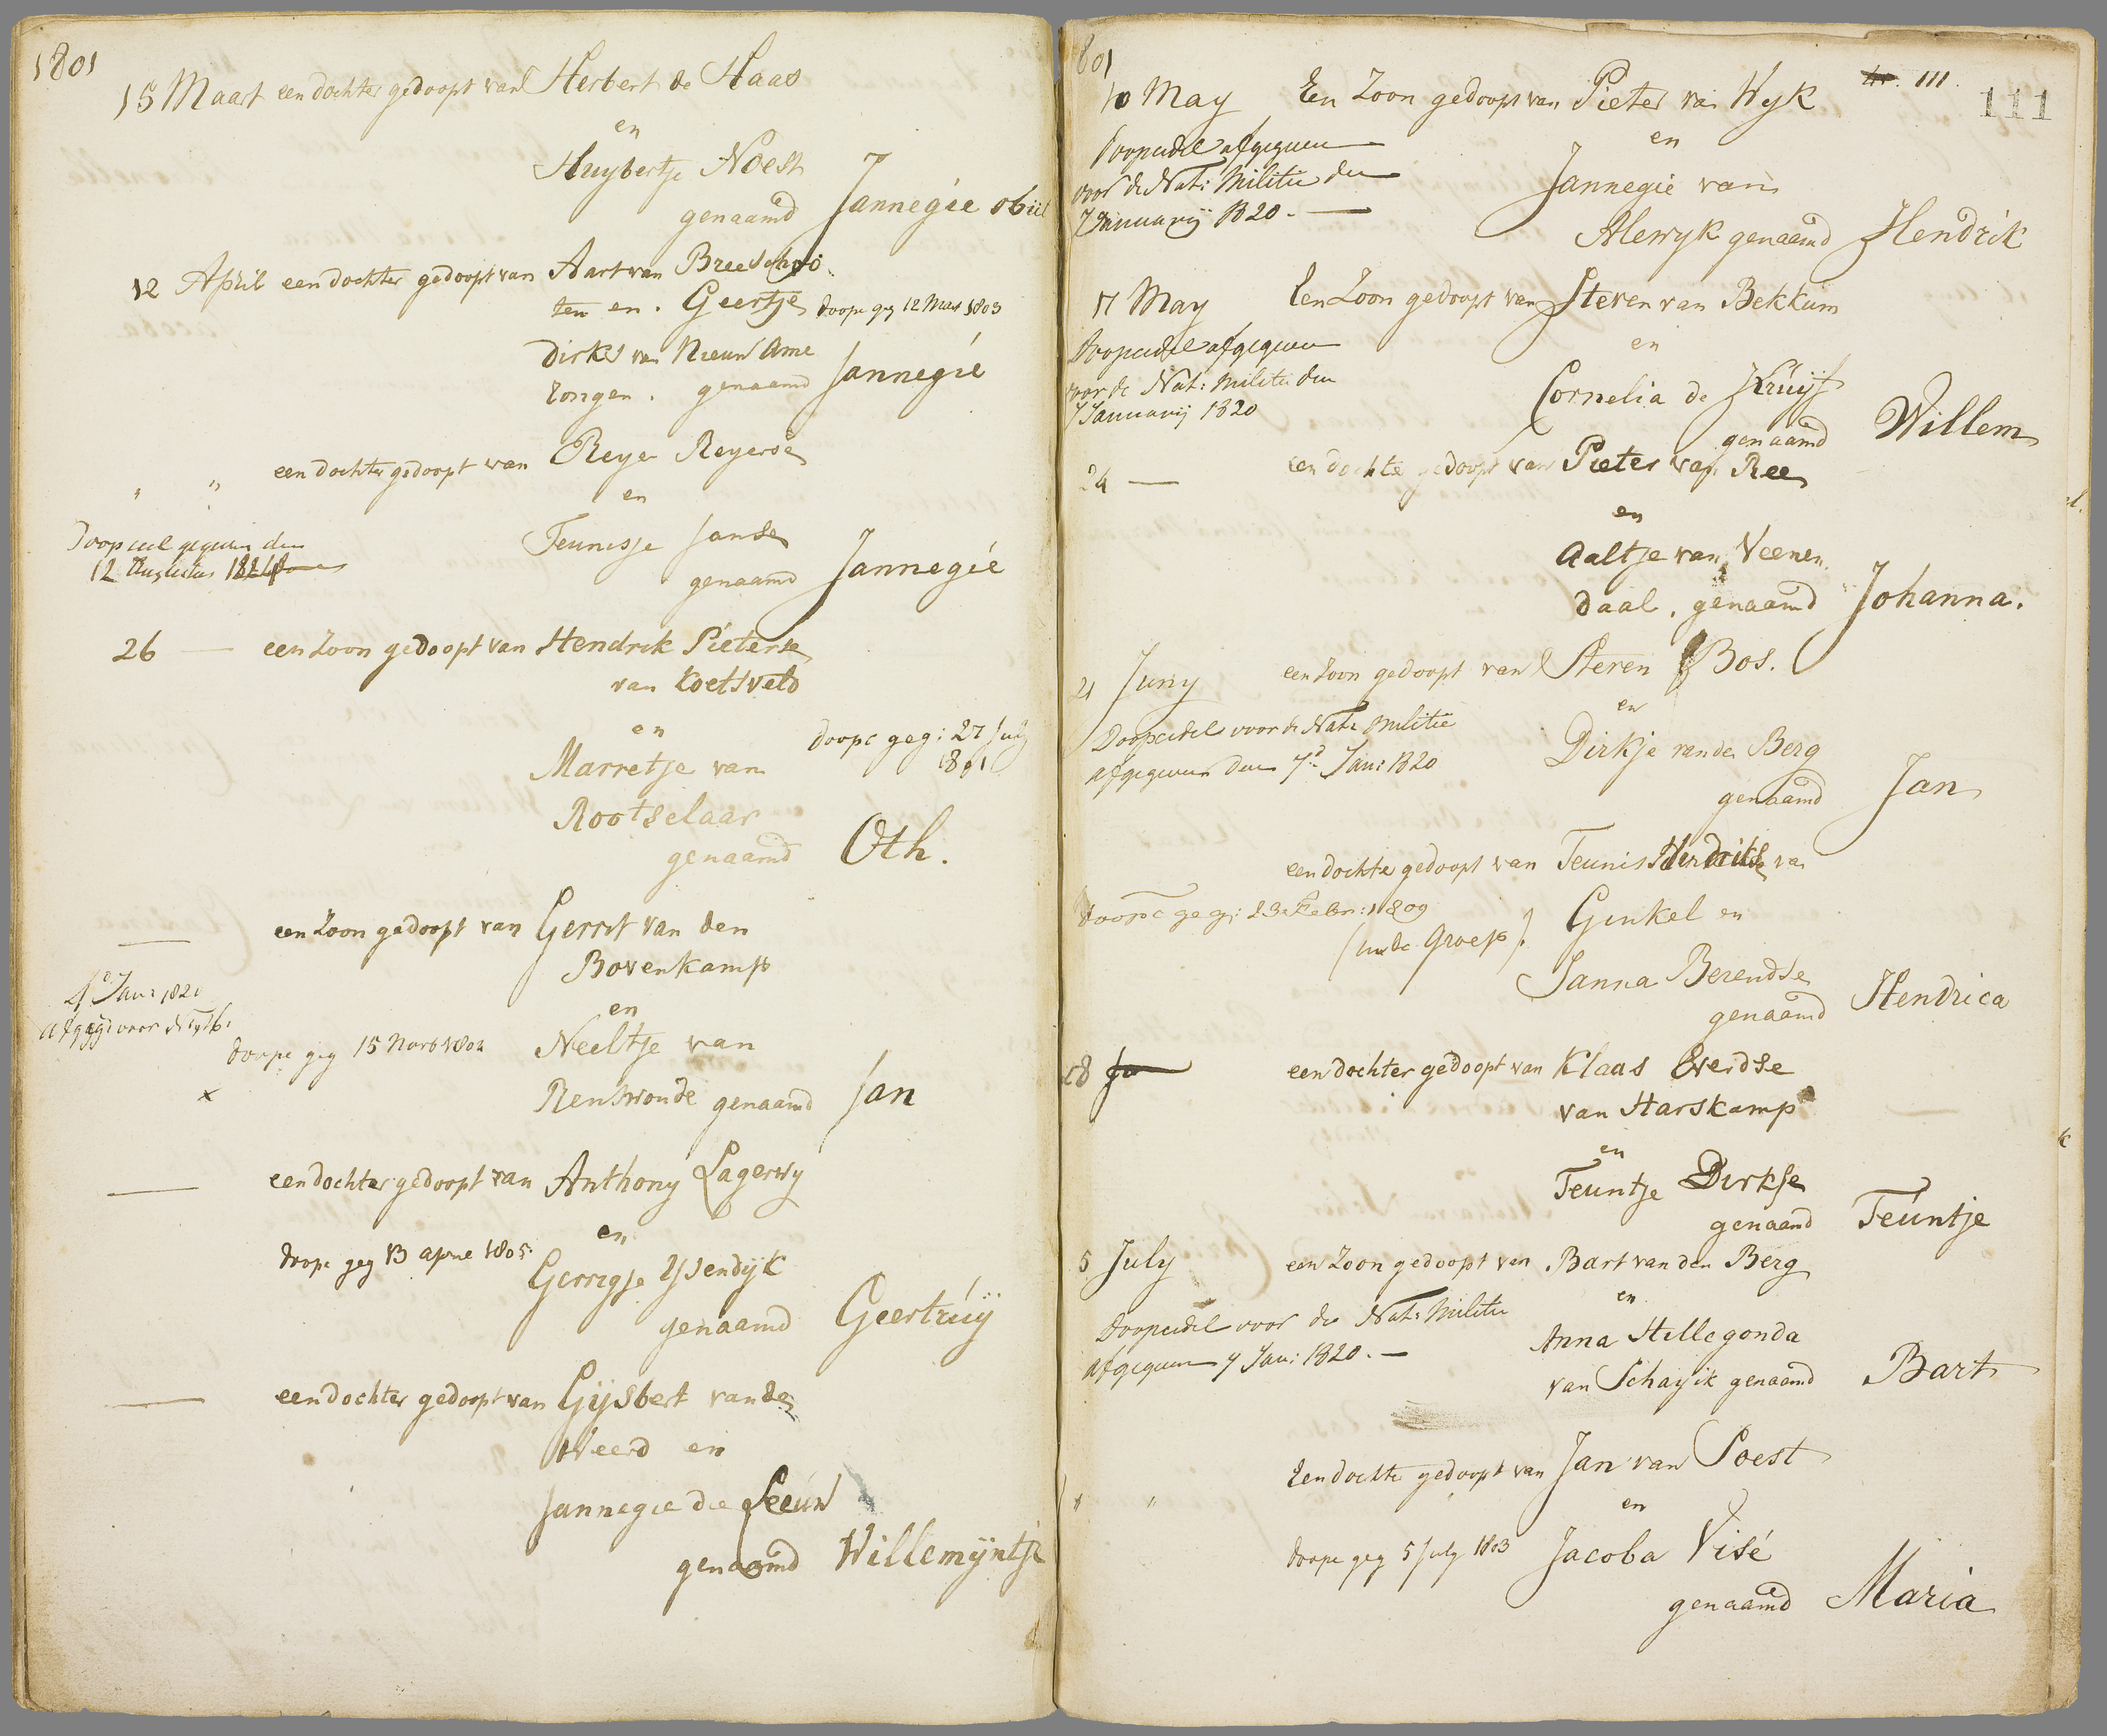 1801
15 Maart een dochter gedoopt van Herbert de Haas
en
Huybertje Noest
genaamd Jannegie obiit
12 April een dochter gedoopt van Aart van Breeschoo
ten en. Geertje doopc geg 12 Maart 1803
Dirks van Nieuw Ame
rongen. genaamd Jannegie
" " een dochter gedoopt van Reyer Reyerse
en
Teunisje Janse
Doopceel gegeven den
12 Augustus
genaamd Jannegie
26 — een Zoon gedoopt van Hendrik Pieterse
van Koetsveld
en
doopc geg: 27 July
1801
Marretje van
Rootselaar
genaamd Oth.
— een Zoon gedoopt van Gerrit van den
Bovenkamp
en
4e Jan: 1820
doopc geg 15 Neeltje van
x
Renswoude genaamd Jan
— een dochter gedoopt van Anthony Lagerwy
en
doopc geg 13 1805
Gerrigje Ysendijk
genaamd Geertruy
— een dochter gedoopt van Gysbert vande
Weerd en
Jannegie de Leeuw
genaamd Willemijntje
801
111.
111
10 May Een Zoon gedoopt van Pieter van Wyk
en
Doopcedel afgegeven
voor de Nat: Militie den
7 Januarij 1820. —
Jannegie van
Alewyk genaamd Hendrik
17 May Een Zoon gedoopt van Steven van Bekkum
en
Doopcedel afgegeven
voor de Nat: Militie den
7 Januarij 1820
Cornelia de Kruijf
genaamd Willem
24 — een dochter gedoopt van Pieter van Ree
en
Aaltje van Veenen
daal. genaamd Johanna.
21 Juny een Zoon gedoopt van Steven Bos.
en
Doopcedel voor de Nat: Militie
afgegeven den 7d Jan: 1820
Dirkje vander Berg
genaamd Jan
een dochter gedoopt van Teunis Hendrikse van
doopc geg: 23 Febr: 1809
(in de Groep)
Ginkel en
Janna Berendse
genaamd Hendrica
28 een dochter gedoopt van Klaas Everdse
van Harskamp
en
Teuntje Dirkse
genaamd Teuntje
5 July een Zoon gedoopt van Bart van den Berg
en
Doopcedel voor de Nat: Militie
afgegeven 7 Jan: 1820. —
Anna Hillegonda
van Schayik genaamd Bart
" " Een dochter gedoopt van Jan van Soest
en
doopc geg 5 July 1803 Jacoba Visé
genaamd Maria